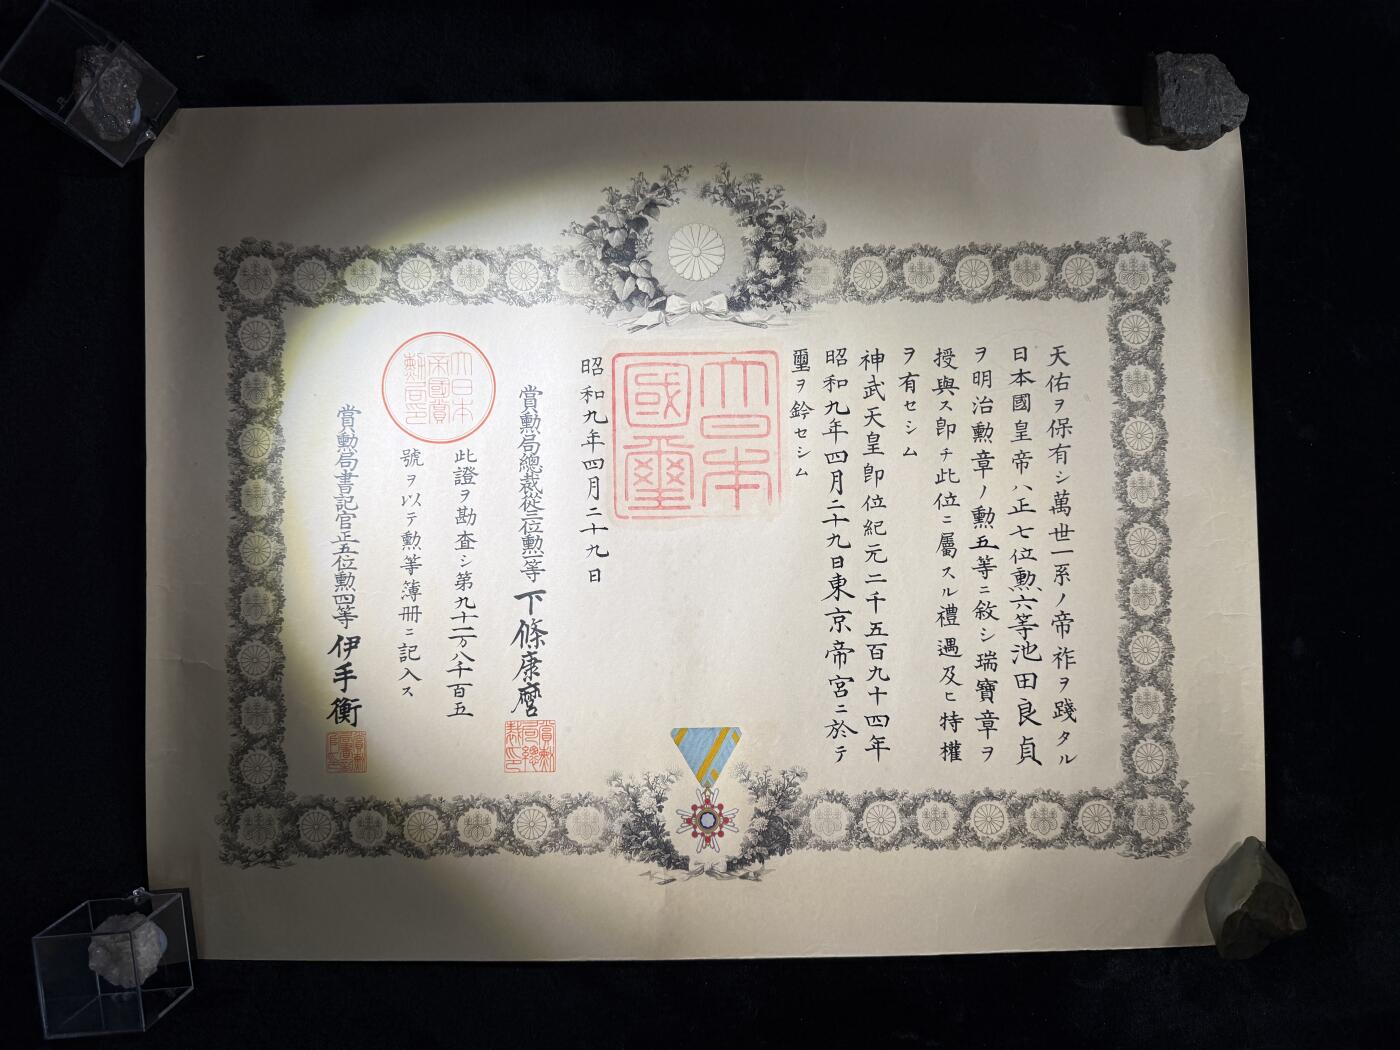 天佑ヲ保有シ萬世一系ノ帝祚ヲ踐タル
日本國皇帝ハ正七位勲六等池田良貞
ヲ明治勲章ノ勲五等ニ敘シ瑞寶章ヲ
授與ス卽チ此位ニ屬スル禮遇及ヒ特權
ヲ有セシム
神武天皇卽位紀元二千五百九十四年
昭和九年四月二十九日東京帝宮ニ於テ
璽ヲ鈐セシム
大日本國璽
昭和九年四月二十九日
賞勲局總裁從三位勲一等下條康麿
賞勲局總裁印
此證ヲ勘査シ第九十二万八千百五
號ヲ以テ勲等簿册ニ記入ス
大日本帝國賞勲局印
賞勲局書記官正五位勲四等伊手衡